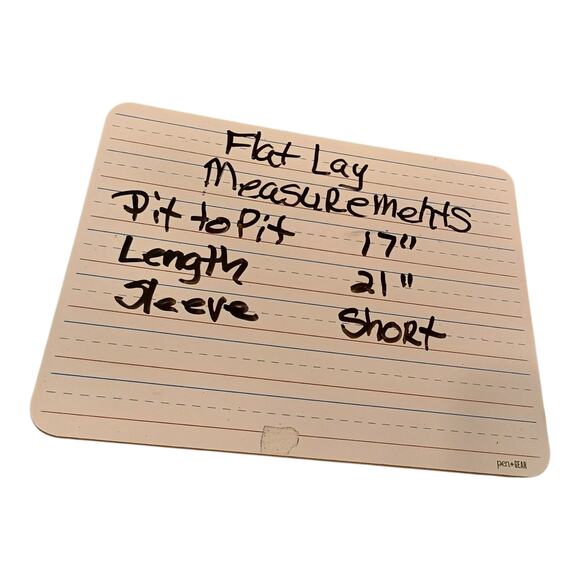 Flat Lay
Measurements
Pit to Pit 17"
Length 21"
Sleeve Short
pen+GEAR